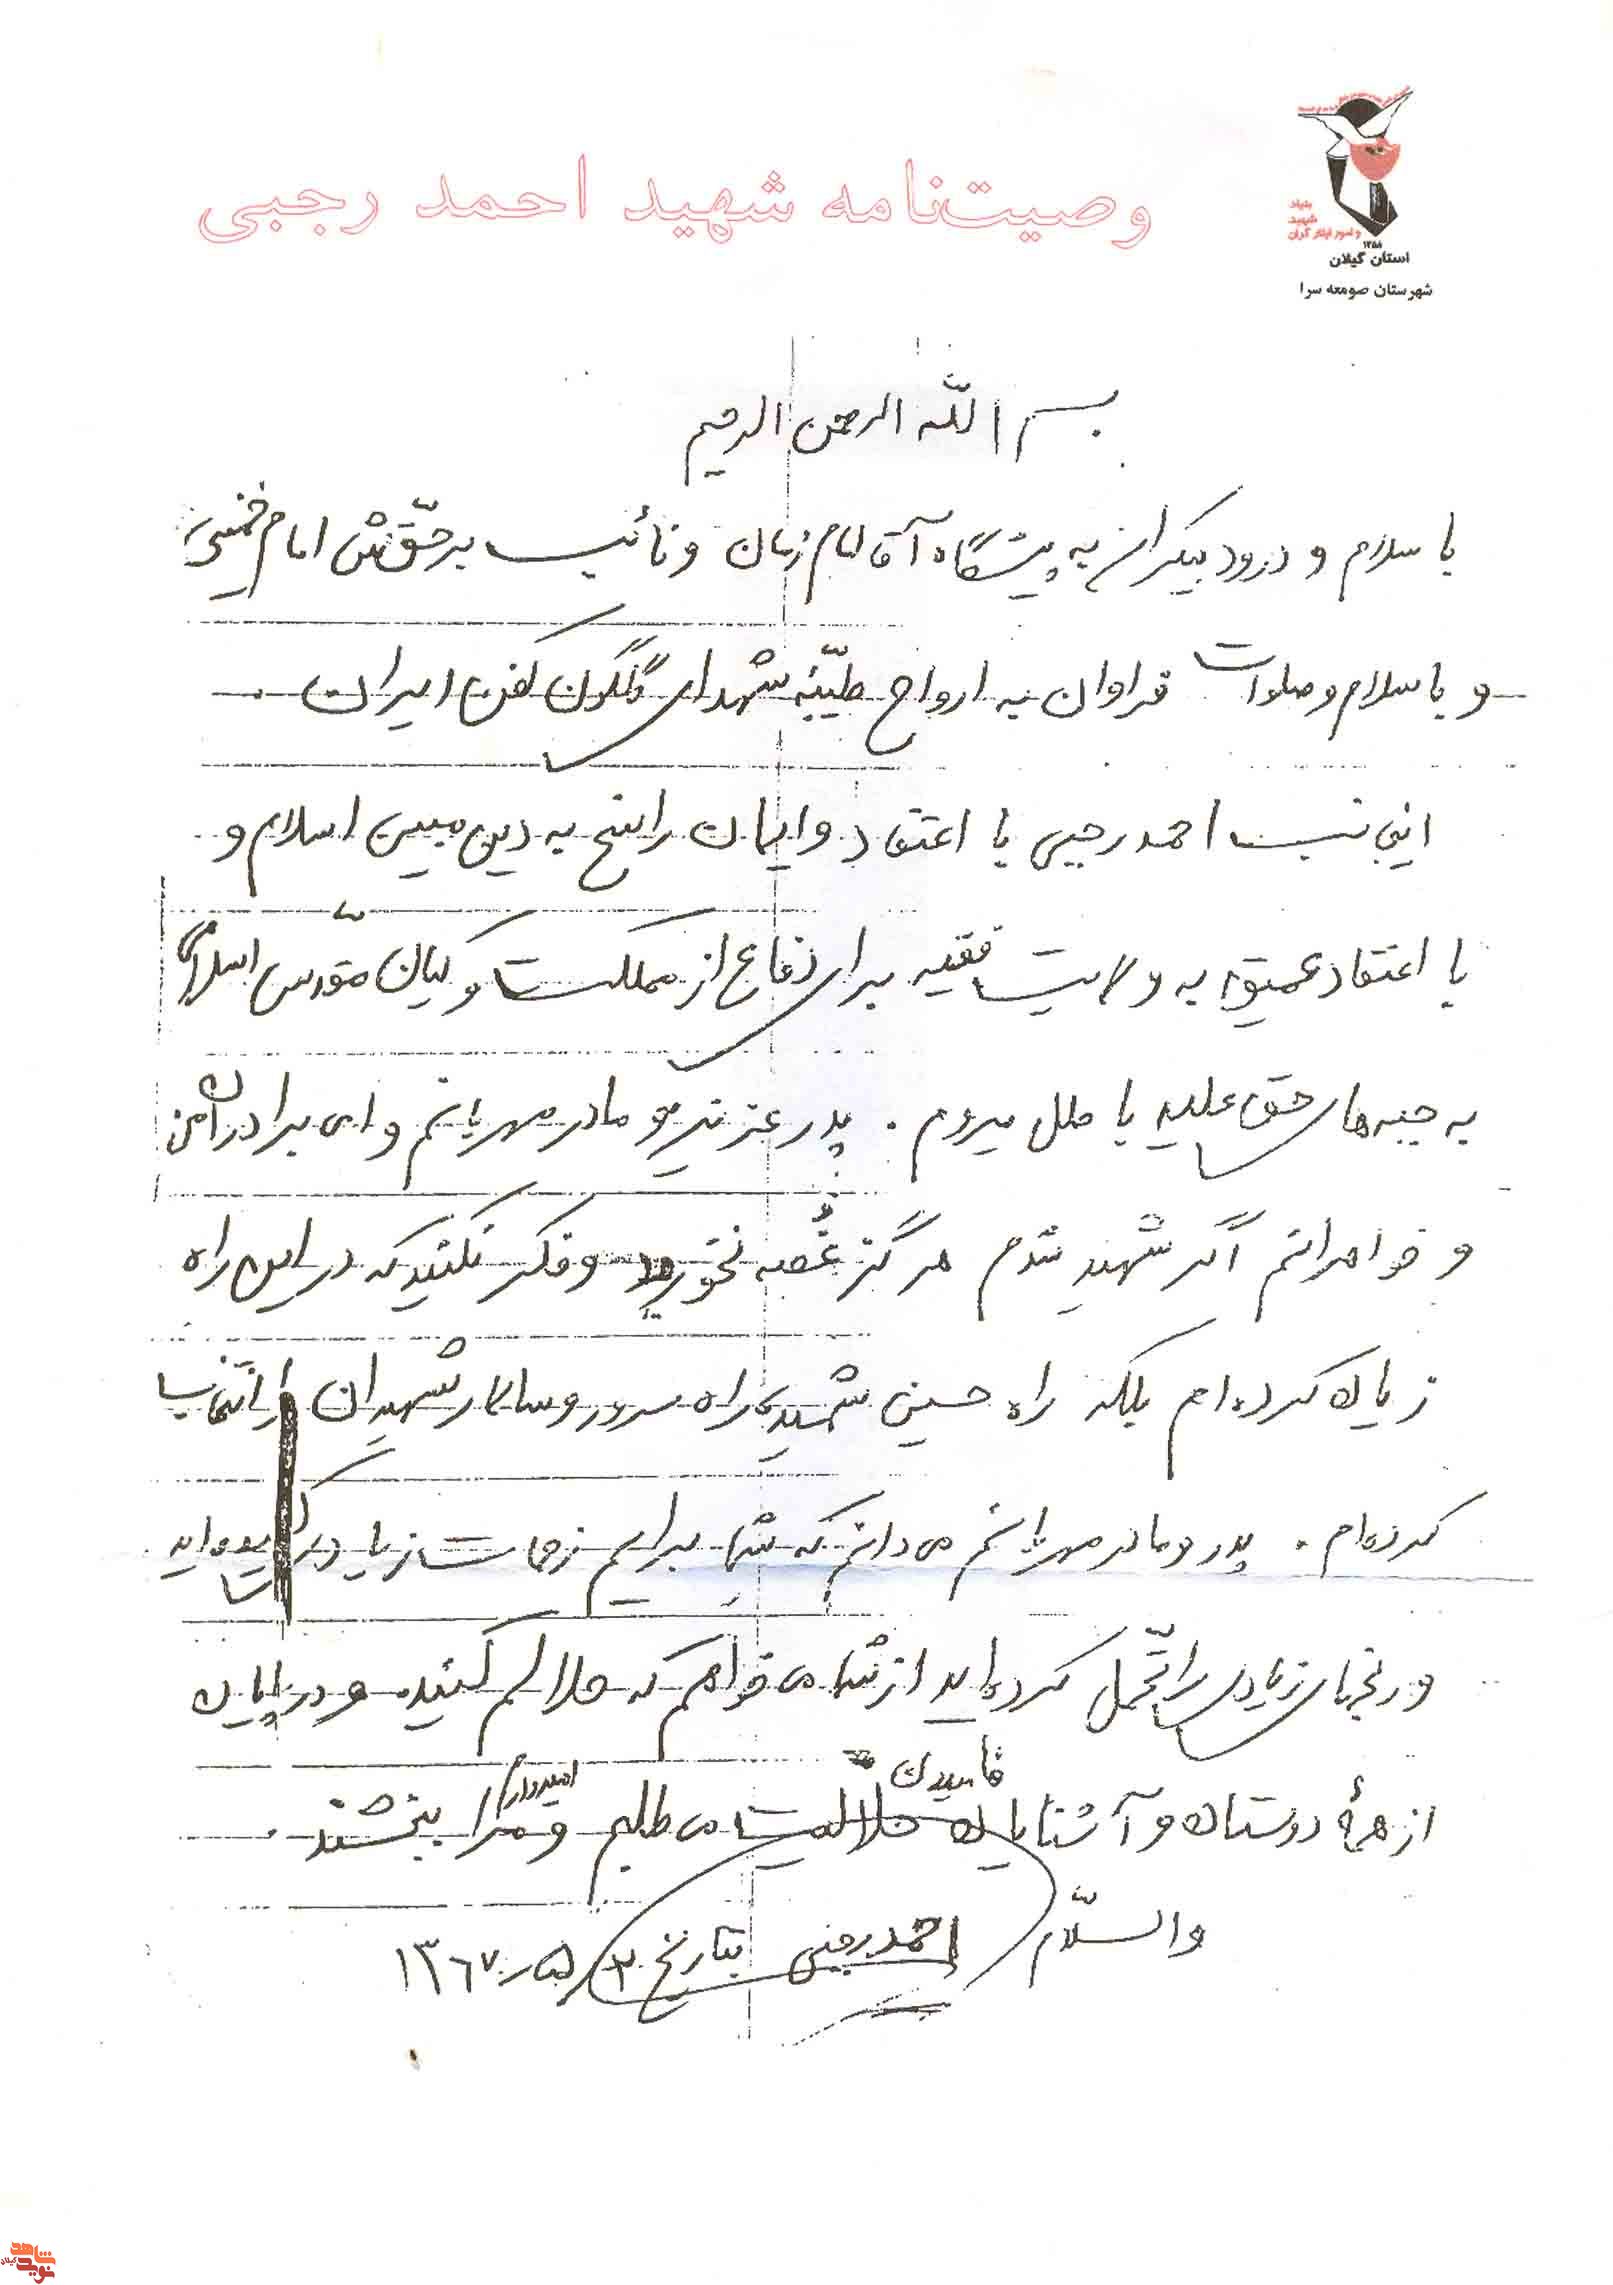 وصیت‌نامه شهید احمد رجبی
بنیاد
شهید
و امور ایثارگران
۱۳۵۸
استان گیلان
شهرستان صومعه سرا
بسم اللّه الرحمن الرحیم
با سلام و درود بیکران به پیشگاه آقا امام زمان و نائب برحقّش امام خمینی
و با سلام و صلوات فراوان به ارواح طیّبه شهدای گلگون کفن ایران.
اینجانب احمد رجبی با اعتقاد و ایمان راسخ به دین مبین اسلام و
با اعتقاد عمیق به ولایت فقیه برای دفاع از مملکت و کیان مقدّس اسلامی
به جبهه‌های حق علیه باطل میروم. پدر عزیز و مادر مهربانم و ای برادران من
و خواهرانم اگر شهید شدم هرگز غُصه نخورید و فکر نکنید که در این راه
زیان کرده‌ام بلکه راه حسین شهید، راه سرور و سالار شهیدان را انتخاب
کرده‌ام. پدر و مادر مهربانم می‌دانم که شما برایم زحمات زیاد کشیده‌اید
و رنجهای زیادی را تحّمل کرده‌اید از شما می‌خواهم که حلالم کنید. و در پایان
از همهٔ دوستان و آشنایان فامیلان حلالیت می‌طلبم و امیدوارم مرا ببخشند.
والسّلام احمد رجبی بتاریخ ۳/۵/۱۳۶۷
نوید شاهد گیلان